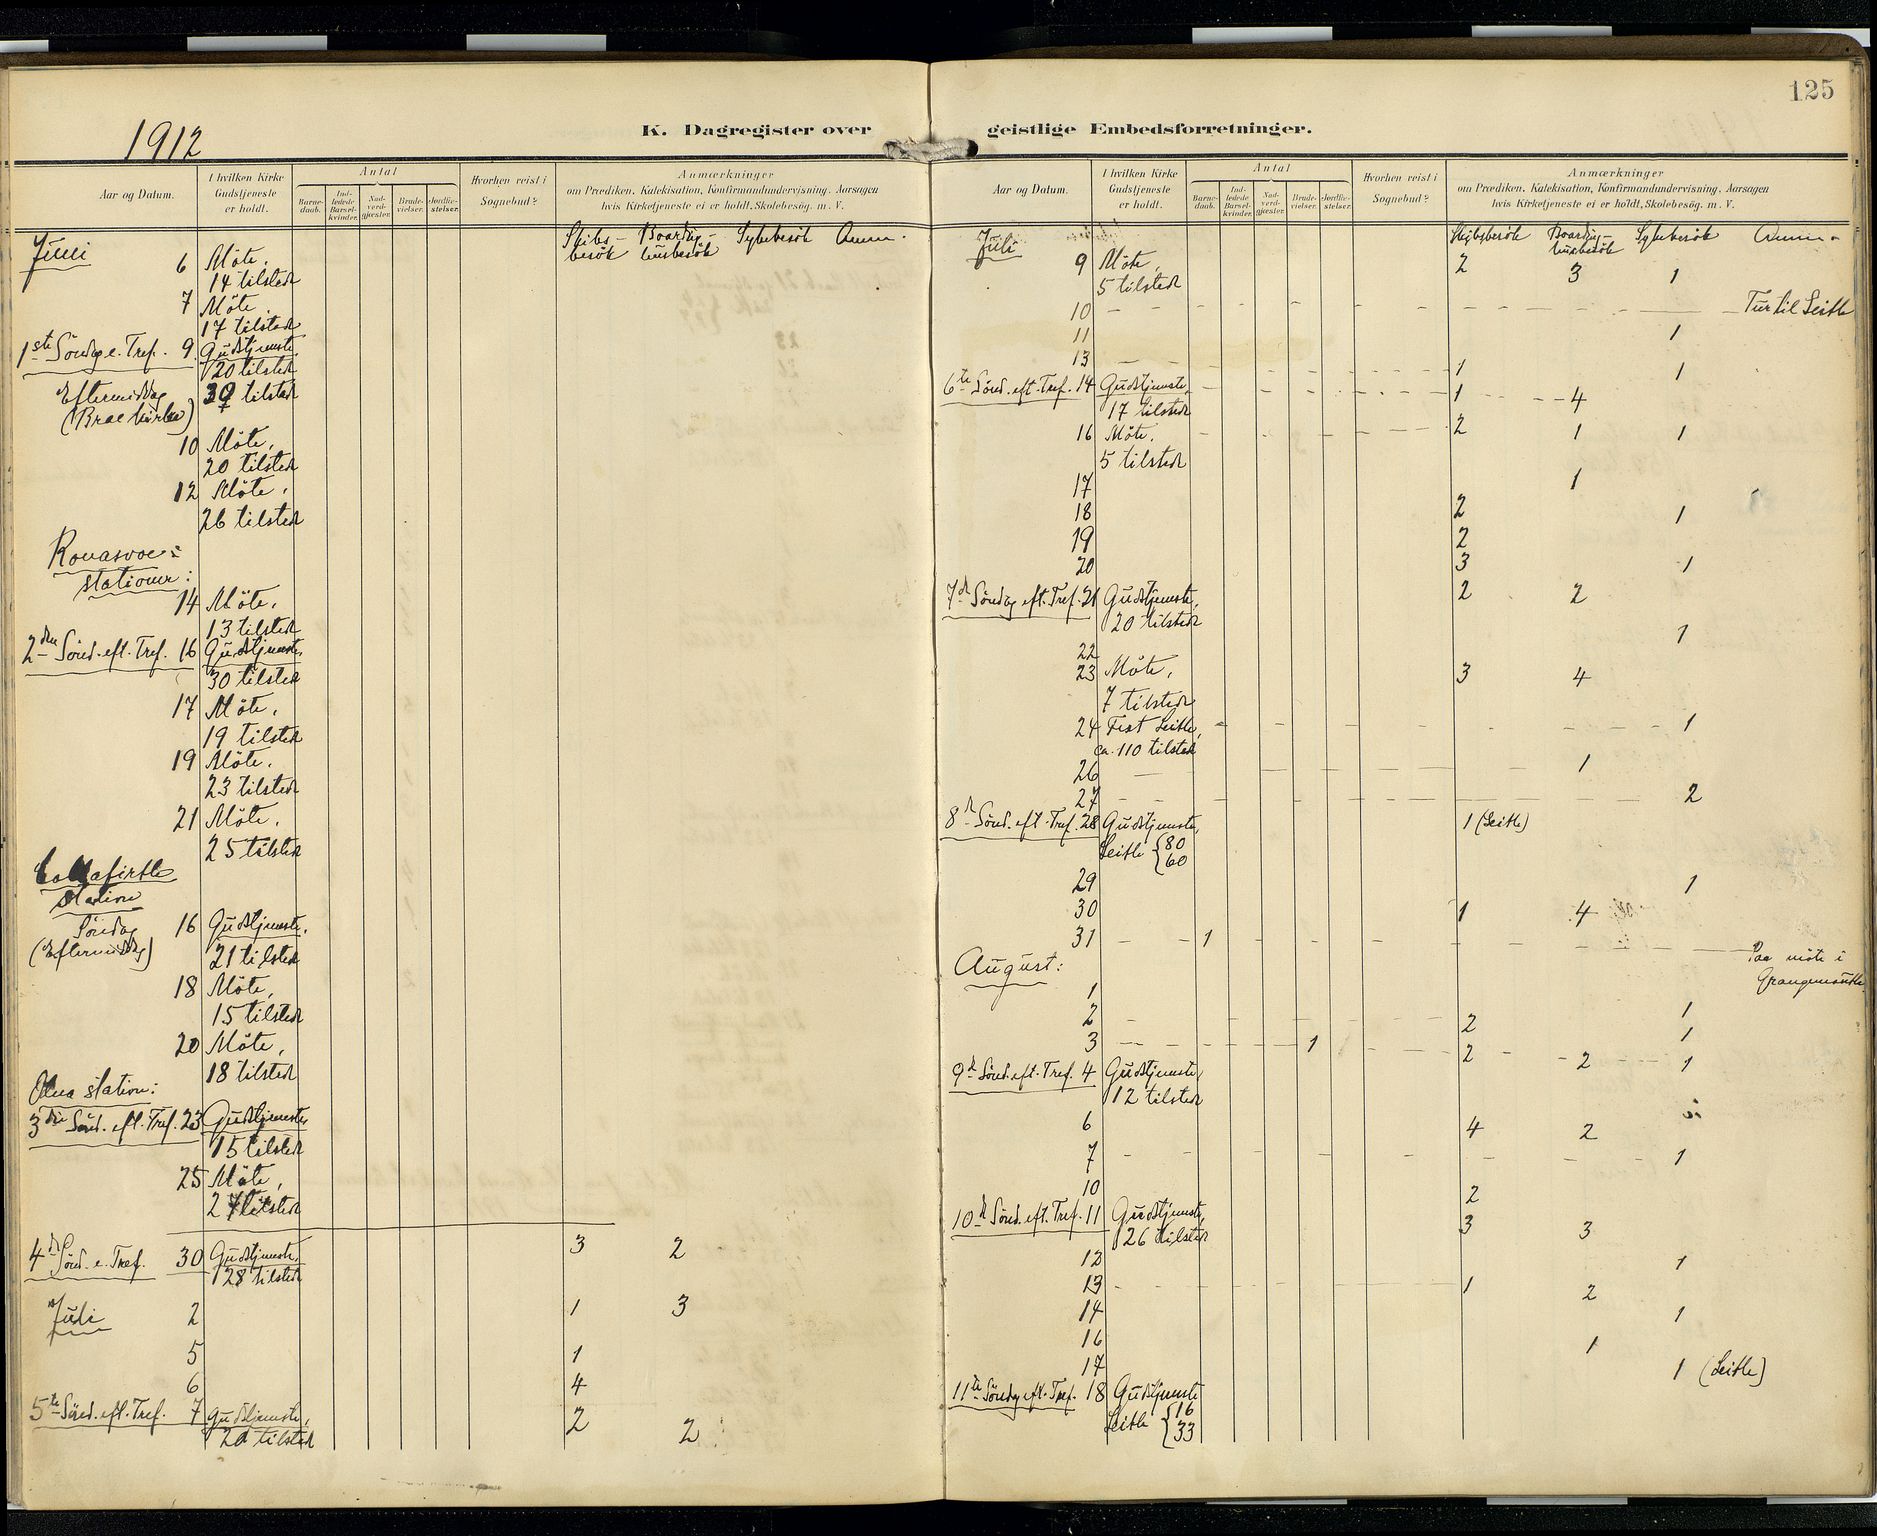 125
K. Dagregister over geistlige Embedsforretninger.
1912
Aar og Datum.
I hvilken Kirke Gudstjeneste er holdt.
Antal
Barne-daab.
Ind-ledede Barsel-kvinder.
Nad-verd-gjæster.
Brude-vielser.
Jordfæ-stelser.
Hvorhen reist i Sognebud?
Anmærkninger
om Prædiken, Katekisation, Konfirmandundervisning, Aarsagen
hvis Kirketjeneste ei er holdt, Skolebesøg. m. V.
Skibs-besök Boarding-husbesök Sykebesök Anm.
Juni
6 Möte,
14 tilsted
7 Möte.
17 tilsted
1ste Söndag e. Tref. 9 Gudstjeneste,
20 tilsted
Eftermiddag 39 tilsted
(Brae kirke)
10 Möte,
20 tilsted
12 Möte,
26 tilsted
Ronasvoe
stationer:
14 Möte,
13 tilsted
2den Sönd. eft. Tref. 16 Gudstjeneste,
30 tilsted
17 Möte,
19 tilsted
19 Möte,
23 tilsted
21 Möte,
25 tilsted
Collafirthe
station
Söndag 16 Gudstjeneste,
(Eftermiddag) 21 tilsted
18 Möte,
15 tilsted
20 Möte,
18 tilsted
Olna station:
3die Sönd. eft. Tref. 23 Gudstjeneste,
15 tilsted
25 Möte,
27 tilsted
4d Sönd. e. Tref. 30 Gudstjeneste, 3 2
28 tilsted
Juli 2 1 3
5 1
6 4
5te Sönd. eft. Tref. 7 Gudstjeneste, 2 2
20 tilsted
Aar og Datum.
I hvilken Kirke Gudstjeneste er holdt.
Antal
Barne-daab.
Ind-ledede Barsel-kvinder.
Nad-verd-gjæster.
Brude-vielser.
Jordfæ-stelser.
Hvorhen reist i Sognebud?
Anmærkninger
om Prædiken, Katekisation, Konfirmandundervisning, Aarsagen
hvis Kirketjeneste ei er holdt, Skolebesög. m. V.
Skibsbesök Boarding-husbesök Sykebesök Anm.
Juli
9 Möte, 2 3 1
5 tilsted
10 Tur til Leith
11 1
13 1 1
6te Sönd. eft. Tref. 14 Gudstjeneste, 1 4
17 tilsted
16 Möte, 2 1 1
5 tilsted
17 1
18 2 1
19 2
20 3 1
7d Söndag eft. Tref. 21 Gudstjeneste, 2 2
20 tilsted
22 1
23 Möte, 3 4
7 tilsted
24 Fest Leith, 1
ca. 110 tilsted
26 1
27 2
8d Sönd. eft. Tref. 28 Gudstjeneste, 1 (Leith)
Leith {80
60
29 1
30 1 4
31 1 Paa möte i
Grangemouth
August:
1
2 2 1
3 1 2 2 1
9d Sönd. eft. Tref. 4 Gudstjeneste,
12 tilsted
6 4 2
7 1
10 2
10d Sönd. eft. Tref. 11 Gudstjeneste, 3 3
26 tilsted
12 1
13 1 2
14 1
16 1
17 1 (Leith)
11te Söndag eft. Tref. 18 Gudstjeneste
Leith {16
33